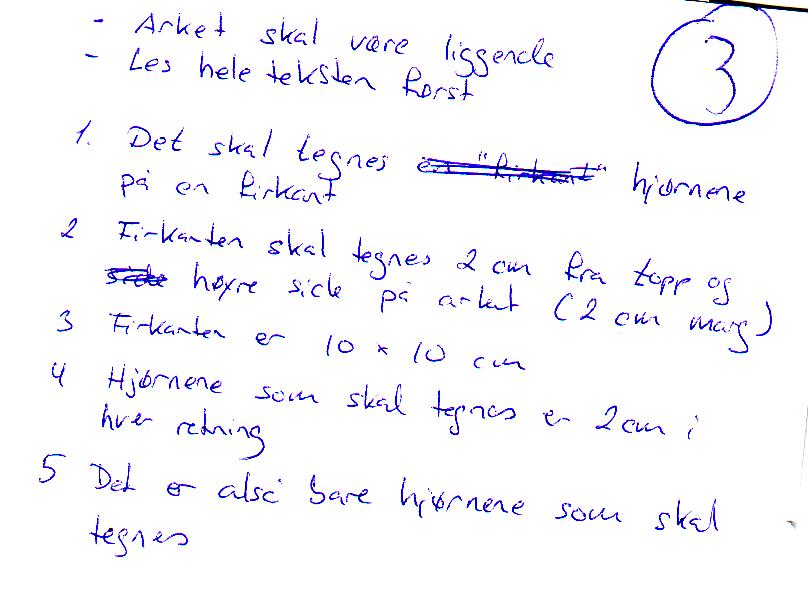 - Arket skal være liggende
- Les hele teksten først
3
1. Det skal tegnes et "firkant" hjørnene
på en firkant
2 Firkanten skal tegnes 2 cm fra topp og
side høyre side på arket (2 cm marg)
3 Firkanten er 10 x 10 cm
4 Hjørnene som skal tegnes er 2 cm i
hver retning
5 Det er alså bare hjørnene som skal
tegnes